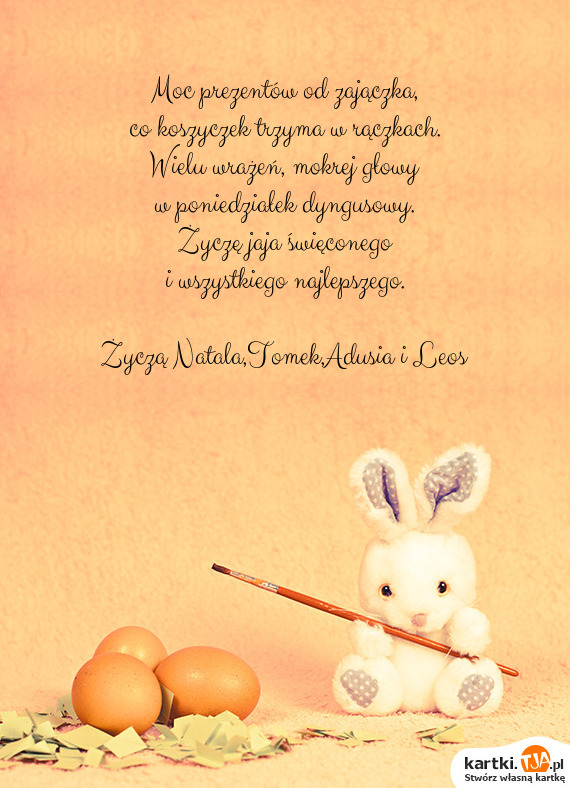 Moc prezentów od zajączka,
co koszyczek trzyma w rączkach.
Wielu wrażeń, mokrej głowy
w poniedziałek dyngusowy.
Życzę jaja święconego
i wszystkiego najlepszego.
Życzą Natala,Tomek,Adusia i Leos
kartki.TJA.pl
Stwórz własną kartkę